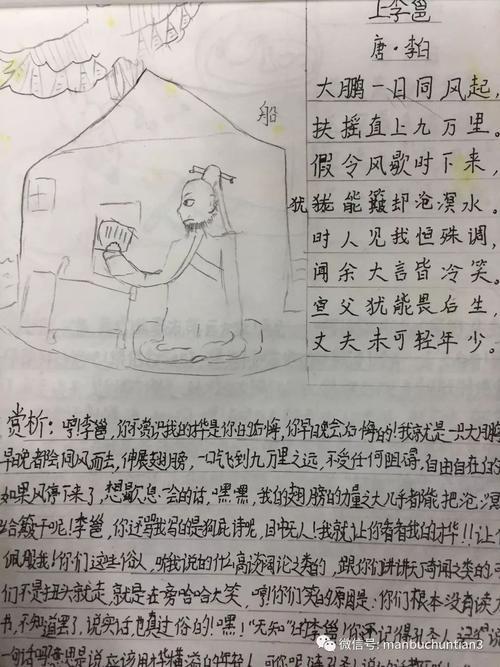 上李邕
唐·李白
大鹏一日同风起,
扶摇直上九万里。
假令风歇时下来,
犹能簸却沧溟水。
时人见我恒殊调,
闻余大言皆冷笑。
宣父犹能畏后生,
丈夫未可轻年少。
船
赏析:哼!李邕,你不赏识我的才华是你的后悔,你早晚会后悔的!我就是一只大鹏
早晚都会同风而去,伸展翅膀,一口气飞到九万里之远,不受任何阻碍,自由自在的
如果风停下来了,想歇息一会的话,嘿嘿,我的翅膀的力量之大几乎都能把沧溟
给簸干呢!李邕,你还骂我写的是狗屁诗呢,目中无人!我就让你看看我的才华!!让
佩服我!你们这些俗人,听我说的什么高谈阔论之类的,跟你们讲讲天奇闻之类的
们不是扭头就走,就是在旁哈哈大笑,哼!你们笑的原因是:你们根本没有读
书,不知道罢了,说实话也真过俗的!嘿!"无知"的李邕!你还记得孔圣人
年轻人
微信号: manbuchuntian3